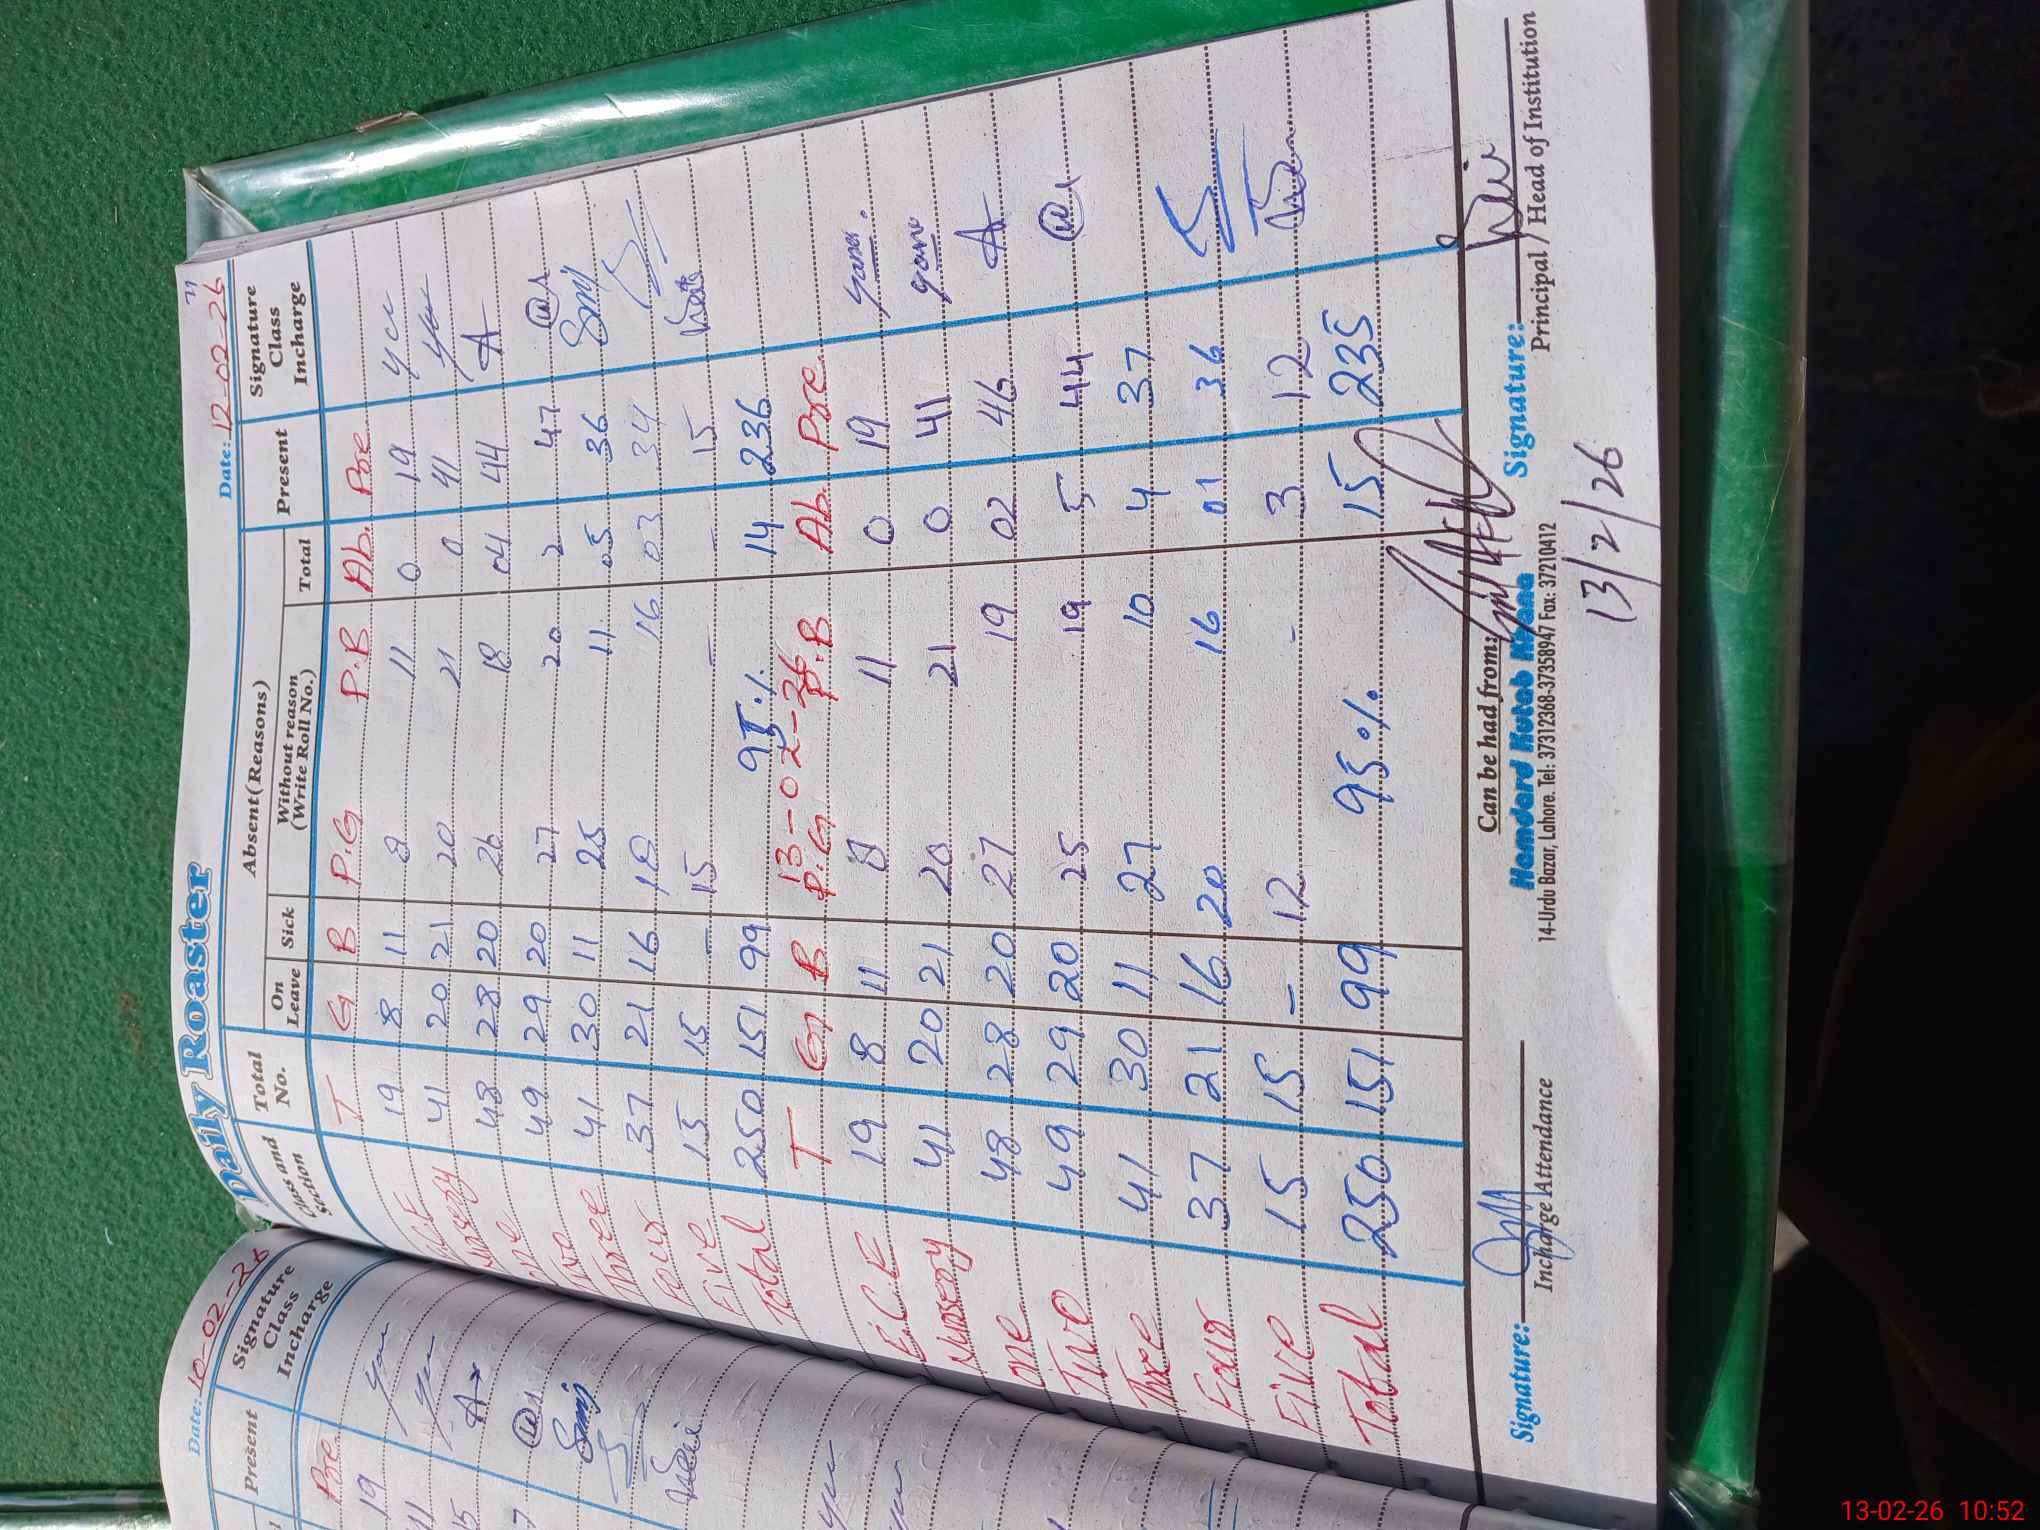 Date: 10-02-26
Present Signature Class Incharge
Pre
19
41
Daily Roaster
71
Date: 12-02-26
Class and Section Total No. Absent(Reasons) Present Signature Class Incharge
On Leave Sick Without reason (Write Roll No.) Total
T G B P.G P.B Ab. Pre
19 8 11 8 11 0 19
Nursery 41 20 21 20 21 0 41
48 28 20 26 18 04 44 A
49 29 20 27 20 2 47
Three 41 30 11 25 11 05 36
Four 37 21 16 18 16 03 34
Five 15 15 - 15 - - 15
Total 250 151 99 95% 14 236
13-02-26
T G B P.G P.B Ab. Pre
E.C.E 19 8 11 8 11 0 19
Nursery 41 20 21 20 21 0 41
One 48 28 20 27 19 02 46 A
Two 49 29 20 25 19 5 44
Three 41 30 11 27 10 4 37
Four 37 21 16 20 16 01 36
Five 15 15 - 12 - 3 12
Total 250 151 99 95% 15 235
Signature:
Incharge Attendance
Can be had from:
Hamdard Kutab Khana
14-Urdu Bazar, Lahore. Tel: 37312368-37358947 Fax: 37210412
Signature:
Principal / Head of Institution
13/2/26
13-02-26 10:52